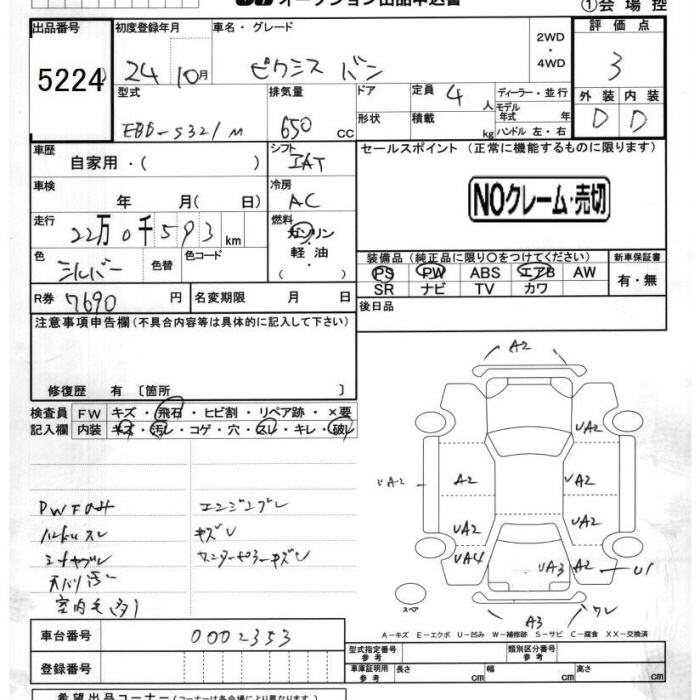 オークション出品申込書
①会場控
出品番号 初度登録年月 車名・グレード 2WD・4WD 評価点
5224 24 10月 ピクシス バン 3
型式 排気量 ドア 定員 4人 ディーラー・並行 外装 内装
EBD-S321M 650 CC 形状 積載 kg モデル年式 年 D D
ハンドル 左・右
車歴 シフト セールスポイント (正常に機能するものに限ります)
自家用・( ) IAT
車検 冷房
年 月( 日) AC NOクレーム・売切
走行 燃料
22万0千593km ガソリン・軽油・( )
色 色替 色コード 装備品 (純正品に限り○をつけてください) 新車保証書
シルバー PS PW ABS エアB AW 有・無
SR ナビ TV カワ
R券 7690円 名変期限 月 日 後日品
注意事項申告欄 (不具合内容等は具体的に記入して下さい)
修復歴 有 [箇所 ]
検査員 FW キズ・飛石・ヒビ割・リペア跡・×要
記入欄 内装 キズ・汚レ・コゲ・穴・スレ・キレ・破レ
A2
UA2
UA2 A2 A2
UA2 UA2
UA4 UA3 A2 U1
A3 ワレ
スペア
PWFのみ エンジンブレ
ハンドルスレ キズレ
シートヤブレ センターピラーキズレ
天バリ汚レ
室内毛(多)
A-キズ E-エクボ U-凹み W-補修跡 S-サビ C-腐食 XX-交換済
車台番号 0002353 型式指定番号 参考 類別区分番号 参考
登録番号 車庫証明用 参考 長さ cm 幅 cm 高さ cm
希望出品コーナー (コーナーは各会場により異なります)